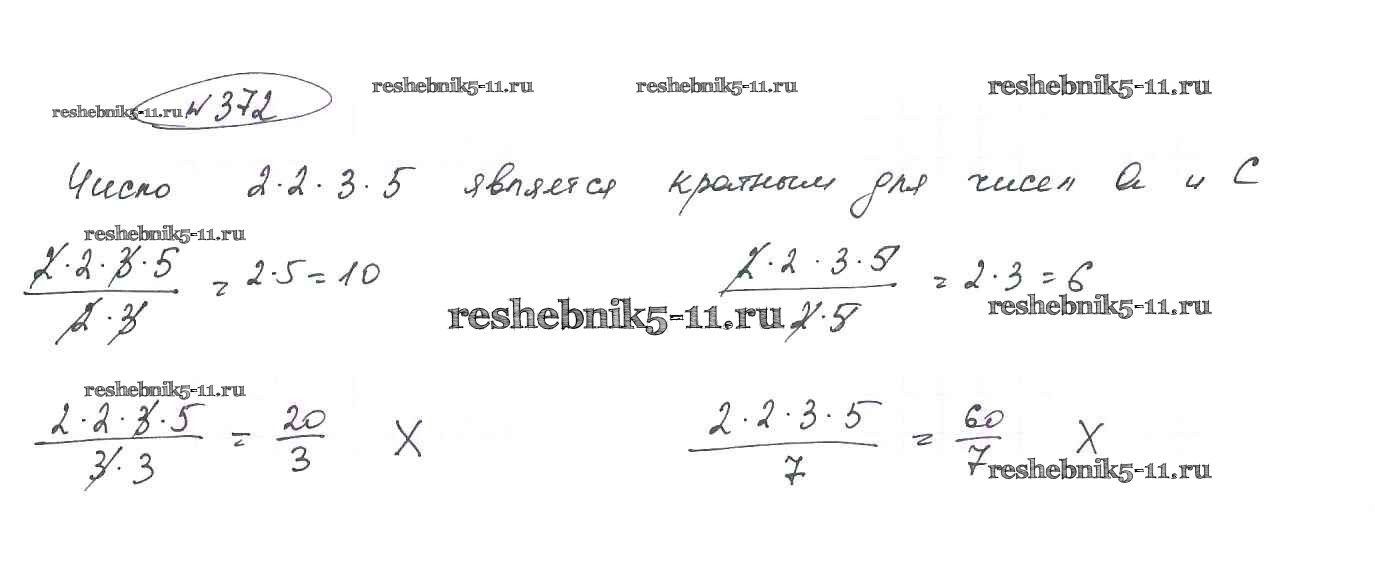 reshebnik5-11.ru reshebnik5-11.ru reshebnik5-11.ru
reshebnik5-11.ru № 372
Число 2·2·3·5 является кратным для чисел a и c
reshebnik5-11.ru
2·2·3·5 / 2·3 = 2·5 = 10
2·2·3·5 / 2·5 = 2·3 = 6
reshebnik5-11.ru reshebnik5-11.ru
reshebnik5-11.ru
2·2·3·5 / 3·3 = 20/3 X
2·2·3·5 / 7 = 60/7 X
reshebnik5-11.ru